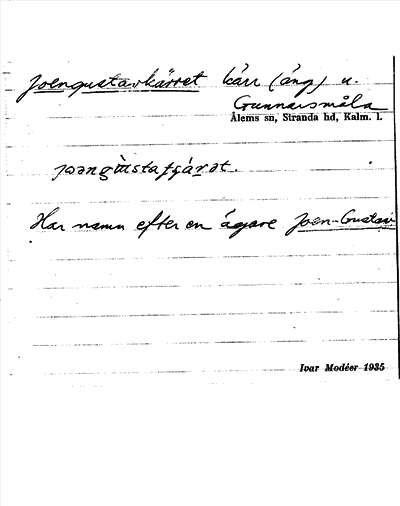 Joengustavkärret kärr (äng) u.
Gunnarsmåla
Ålems sn, Stranda hd, Kalm. l.
Har namn efter en ägare Joen-Gustav
Ivar Modéer 1935